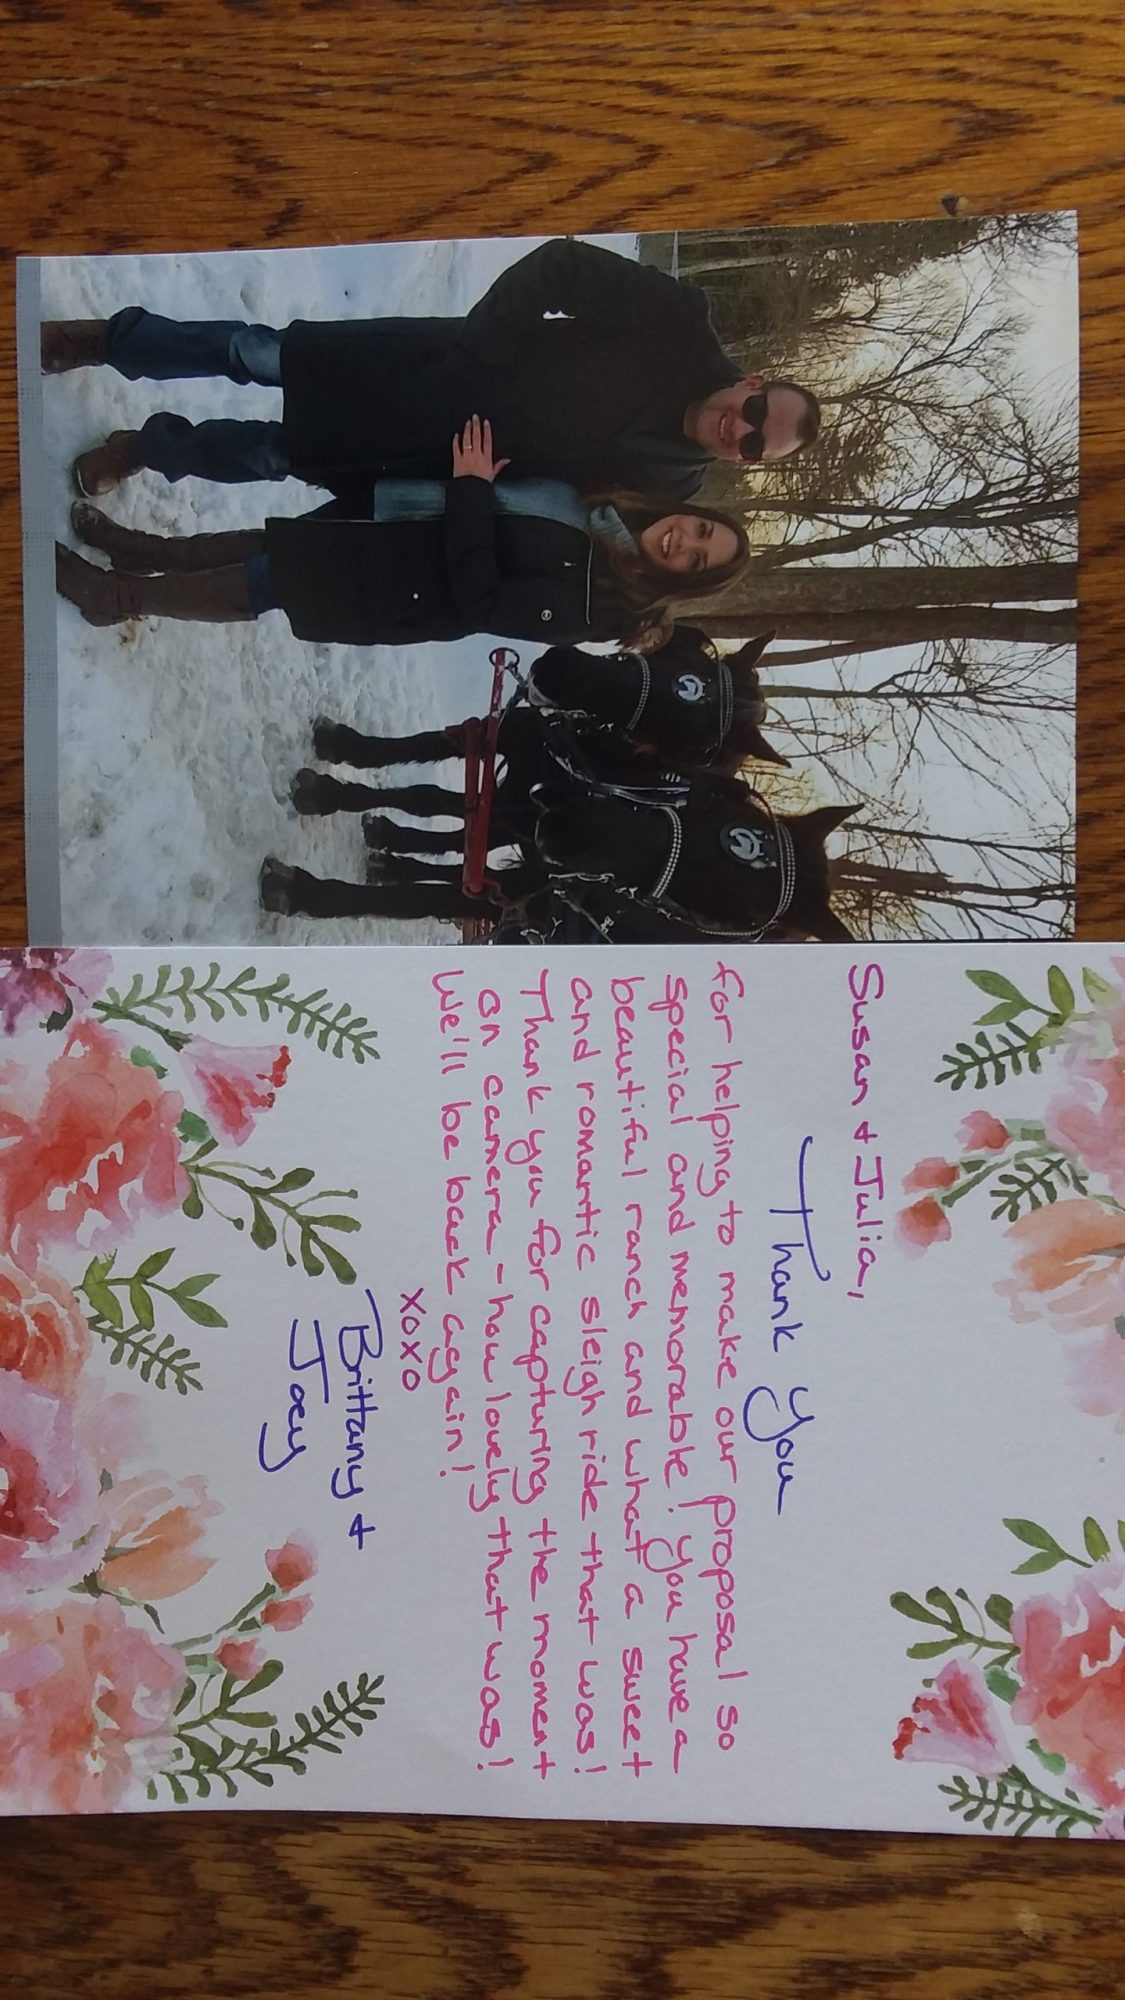 Susan & Julia,
Thank you
for helping to make our proposal so
special and memorable! You have a
beautiful ranch and what a sweet
and romantic sleigh ride that was!
Thank you for capturing the moment
on camera - how lovely that was!
We'll be back again!
xoxo
Brittany &
Joey